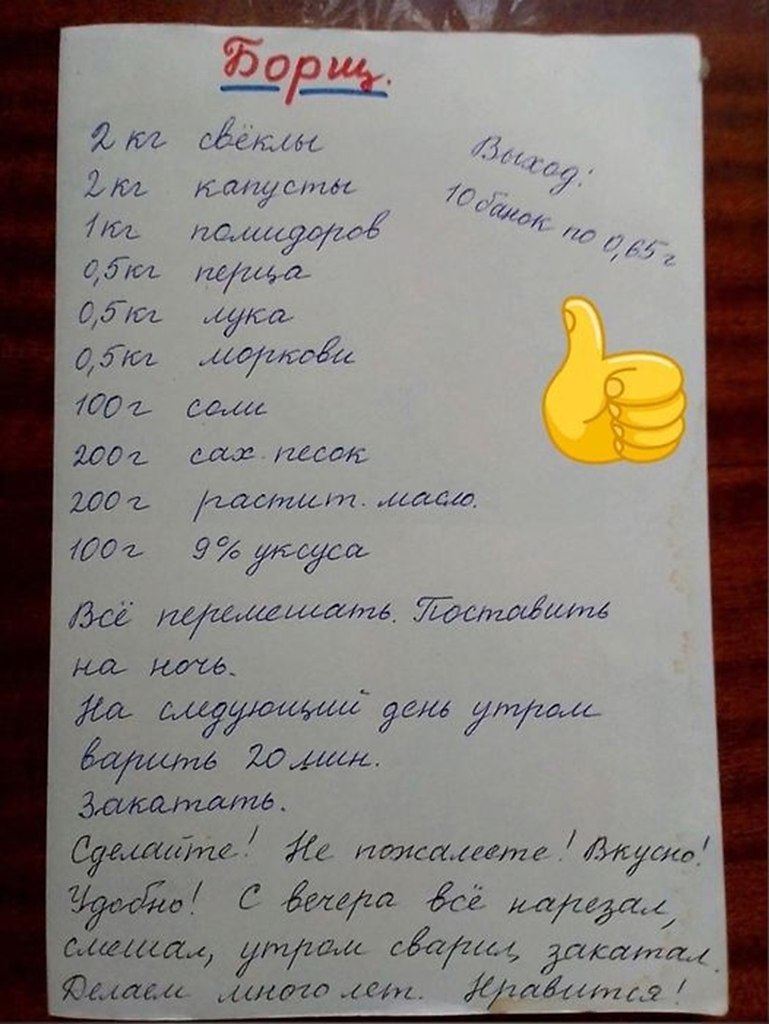 Борщ.
2 кг свёклы
2 кг капусты
1 кг помидоров
0,5 кг перца
0,5 кг лука
0,5 кг моркови
100 г соли
200 г сах. песок
200 г растит. масло.
100 г 9% уксуса
Выход:
10 банок по 0,65 г
Всё перемешать. Поставить
на ночь.
На следующий день утром
варить 20 мин.
Закатать.
Сделайте! Не пожалеете! Вкусно!
Удобно! С вечера всё нарезал,
смешал, утром сварил, закатал.
Делаем много лет. Нравится!